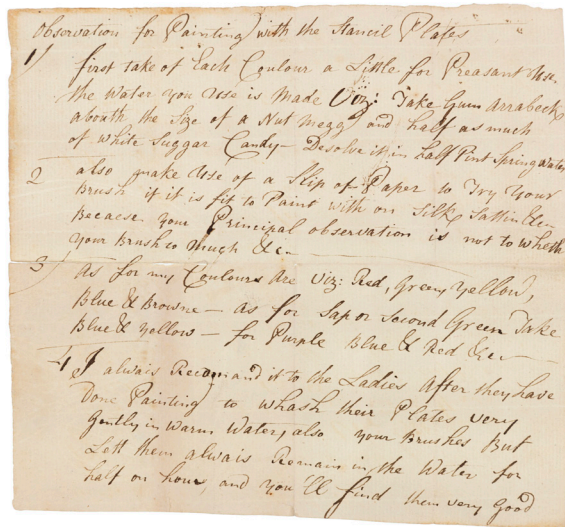 Observation for Painting with the Stancil Plates
1 first take of Each Coulour a Little for Preasant Use.
the Water you Use is Made Viz: Take Gum Arrabeck
abouth the Size of a Nut megg and half as much
of white Suggar Candy – Desolve it in half Pint Spring Water
2 also make Use of a Slip of Paper to Try your
Brush if it is fit to Paint with on Silk, Sattin &c
Becaese your Principal observation is not to wheth
your Brush to Much &c –
3 As for my Coulours are Viz: Red, Green, Yellow,
Blue & Browne – as for Sap or Second Green Take
Blue & Yellow – for Purple Blue & Red &c –
4 I alwais Recomand it to the Ladies After they have
Done Painting to whash their Plates very
Gently in Warm Water, also your Brushes But
Lett them alwais Remain in the Water for
half on hour, and you'll find them very Good